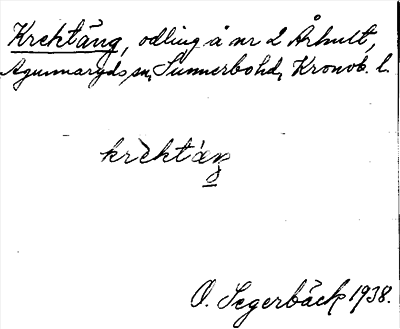 Krektäng, odling å nr 2 Århult,
Agunnaryds sn, Sunnerbo hd, Kronob. l.
krèktäŋ
O. Segerbäck 1938.